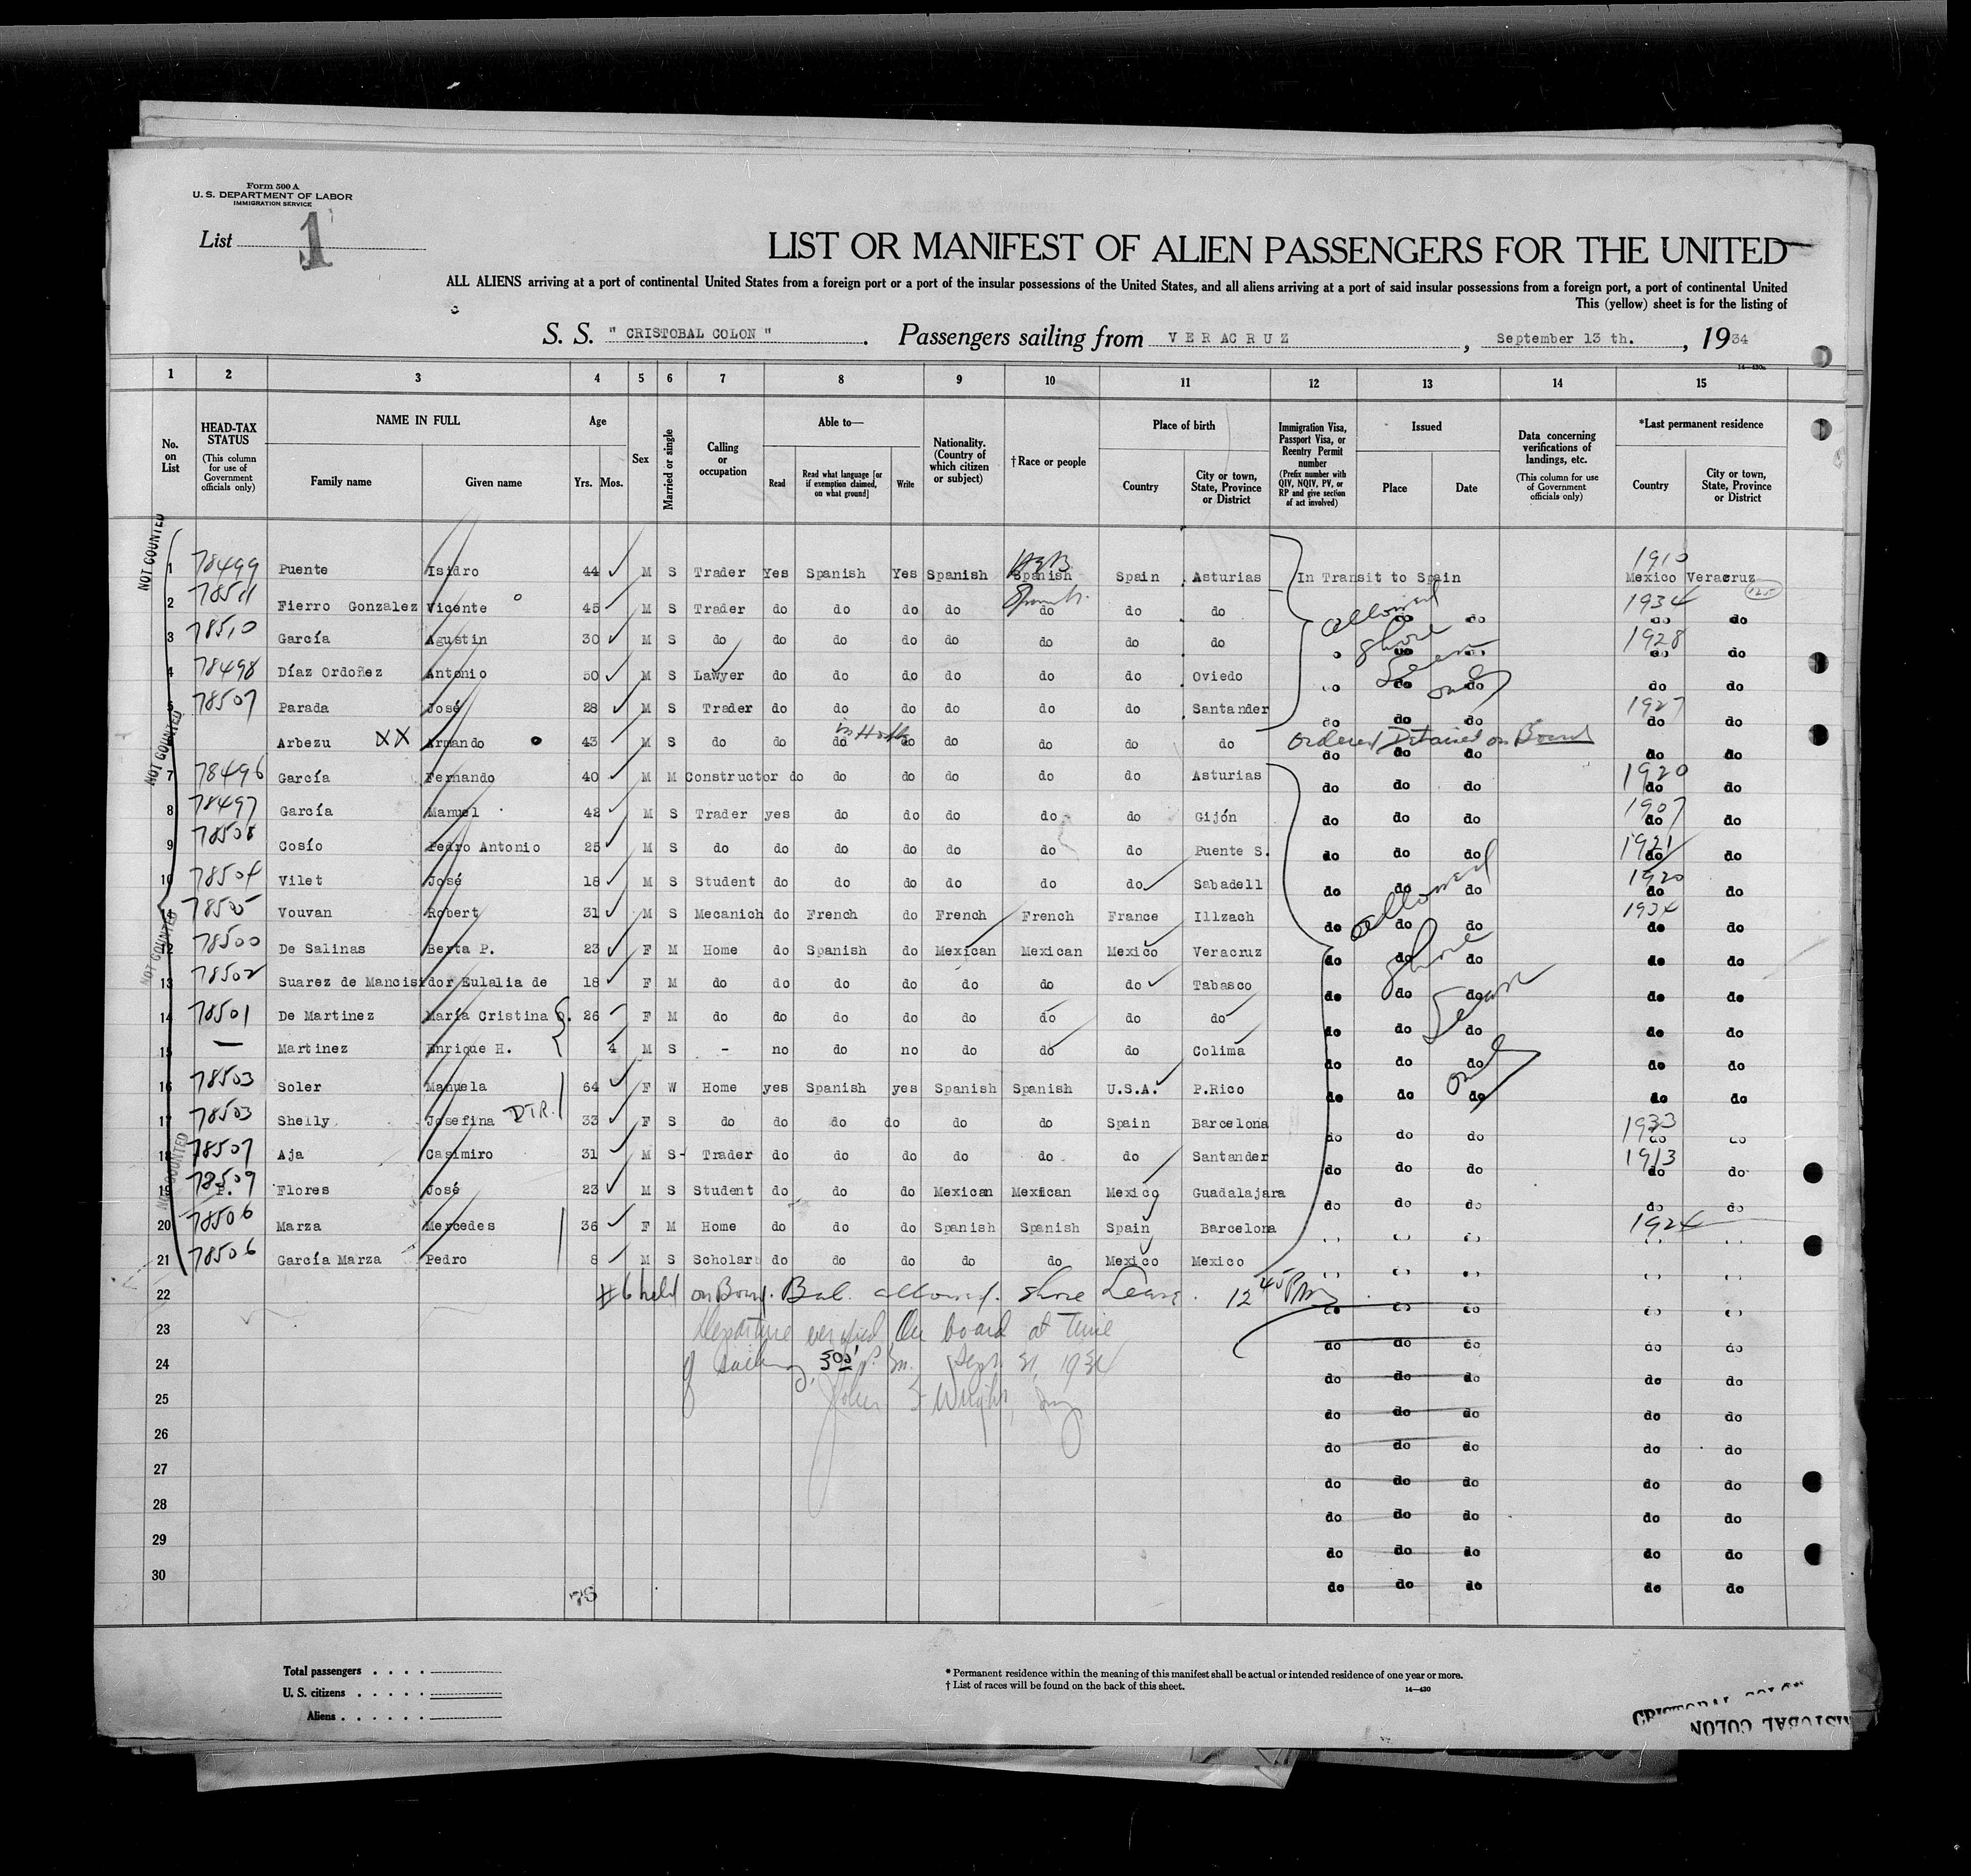 Form 500 A
U. S. DEPARTMENT OF LABOR
IMMIGRATION SERVICE
List 1
LIST OR MANIFEST OF ALIEN PASSENGERS FOR THE UNITED
ALL ALIENS arriving at a port of continental United States from a foreign port or a port of the insular possessions of the United States, and all aliens arriving at a port of said insular possessions from a foreign port, a port of continental United
This (yellow) sheet is for the listing of
S. S. " CRISTOBAL COLON " . Passengers sailing from VERACRUZ , September 13 th. , 1934
14—430a
1 2 3 4 5 6 7 8 9 10 11 12 13 14 15
No. on List
HEAD-TAX STATUS (This column for use of Government officials only)
NAME IN FULL
Family name Given name
Age
Yrs. Mos.
Sex
Married or single
Calling or occupation
Able to—
Read
Read what language [or if exemption claimed, on what ground]
Write
Nationality. (Country of which citizen or subject)
†Race or people
Place of birth
Country
City or town, State, Province or District
Immigration Visa, Passport Visa, or Reentry Permit number (Prefix number with QIV, NQIV, PV, or RP and give section of act involved)
Issued
Place Date
Data concerning verifications of landings, etc. (This column for use of Government officials only)
*Last permanent residence
Country
City or town, State, Province or District
NOT COUNTED
1 78499 Puente Isidro 44 M S Trader Yes Spanish Yes Spanish Spanish Spain Asturias In Transit to Spain 1910 Mexico Veracruz
2 78511 Fierro Gonzalez Vicente 45 M S Trader do do do do Spanish do do do do do 1934 do do
3 78510 García Agustin 30 M S do do do do do do do do do do 1928 do do
4 78498 Díaz Ordoñez Antonio 50 M S Lawyer do do do do do do Oviedo do do do do
5 78507 Parada José 28 M S Trader do do do do do do Santander do do do 1927 do do
allowed shore Leave only
NOT COUNTED
6 Arbezu XX Armando 43 M S do do do do do do do do Ordered Detained on Board do do do do do
7 78496 García Fernando 40 M M Constructor do do do do do do Asturias do do do 1920 do do
8 78497 García Manuel 42 M S Trader yes do do do do do Gijón do do do 1907 do do
9 78508 Cosío Pedro Antonio 25 M S do do do do do do do Puente S. do do do 1921 do do
10 78504 Vilet José 18 M S Student do do do do do do Sabadell do do do 1920 do do
11 78505 Vouvan Robert 31 M S Mecanich do French do French French France Illzach do do do 1934 do do
NOT COUNTED
12 78500 De Salinas Berta P. 23 F M Home do Spanish do Mexican Mexican Mexico Veracruz do do do do do
13 78502 Suarez de Mancisidor Eulalia de 18 F M do do do do do do do Tabasco do do do do do
14 78501 De Martinez María Cristina O. 26 F M do do do do do do do do do do do do do
15 — Martinez Enrique H. 4 M S - no do no do do do Colima do do do do do
16 78503 Soler Manuela 64 F W Home yes Spanish yes Spanish Spanish U.S.A. P.Rico do do do do do
17 78503 Shelly Josefina DTR. 33 F S do do do do do do Spain Barcelona do do do 1933 do do
allowed shore Leave only
NOT COUNTED
18 78507 Aja Casimiro 31 M S- Trader do do do do do do Santander do do do 1913 do do
19 78509 Flores José 23 M S Student do do do Mexican Mexican Mexico Guadalajara do do do do do
20 78506 Marza Mercedes 36 F M Home do do do Spanish Spanish Spain Barcelona 1924
21 78506 García Marza Pedro 8 M S Scholar do do do do do Mexico Mexico
22 #6 held on Board. Bal. allowed. Shore Leave. 12 45 PM do do do do do
23 Departure verified On board at time do do do do do
24 of sailing, 5 00 P. m. Sept 21, 1934 do do do do do
25 John F Wright, do do do do do
26 do do do do do
27 do do do do do
28 do do do do do
29 do do do do do
30 do do do do do
78
Total passengers . . . .
U. S. citizens . . . . .
Aliens . . . . . .
* Permanent residence within the meaning of this manifest shall be actual or intended residence of one year or more.
† List of races will be found on the back of this sheet.
14—430
CRISTOBAL COLON
CRISTOBAL COLON